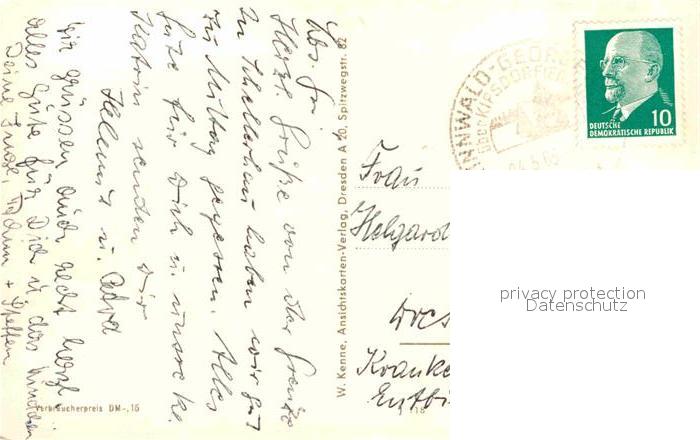 Lbs. Gr.
Herzl. Grüße von der Grenze
In Schellerhau haben wir gut
zu Mittag gegessen. Alles
Gute für Dich u. unsere kl.
Katrin senden Dir
Helmut u.
Wir grüssen auch recht herzl.
Alles Gute für Dich u. das
Deine
Verbraucherpreis DM -,16
W. Kenne, Ansichtskarten-Verlag, Dresden A 20, Spitzwegstr. 82
ZINNWALD-GEORGEN
über KIPSDORF (ERZ
10
DEUTSCHE
DEMOKRATISCHE REPUBLIK
Frau
Helgard
Dres
Kranke
Entbi
privacy protection
Datenschutz